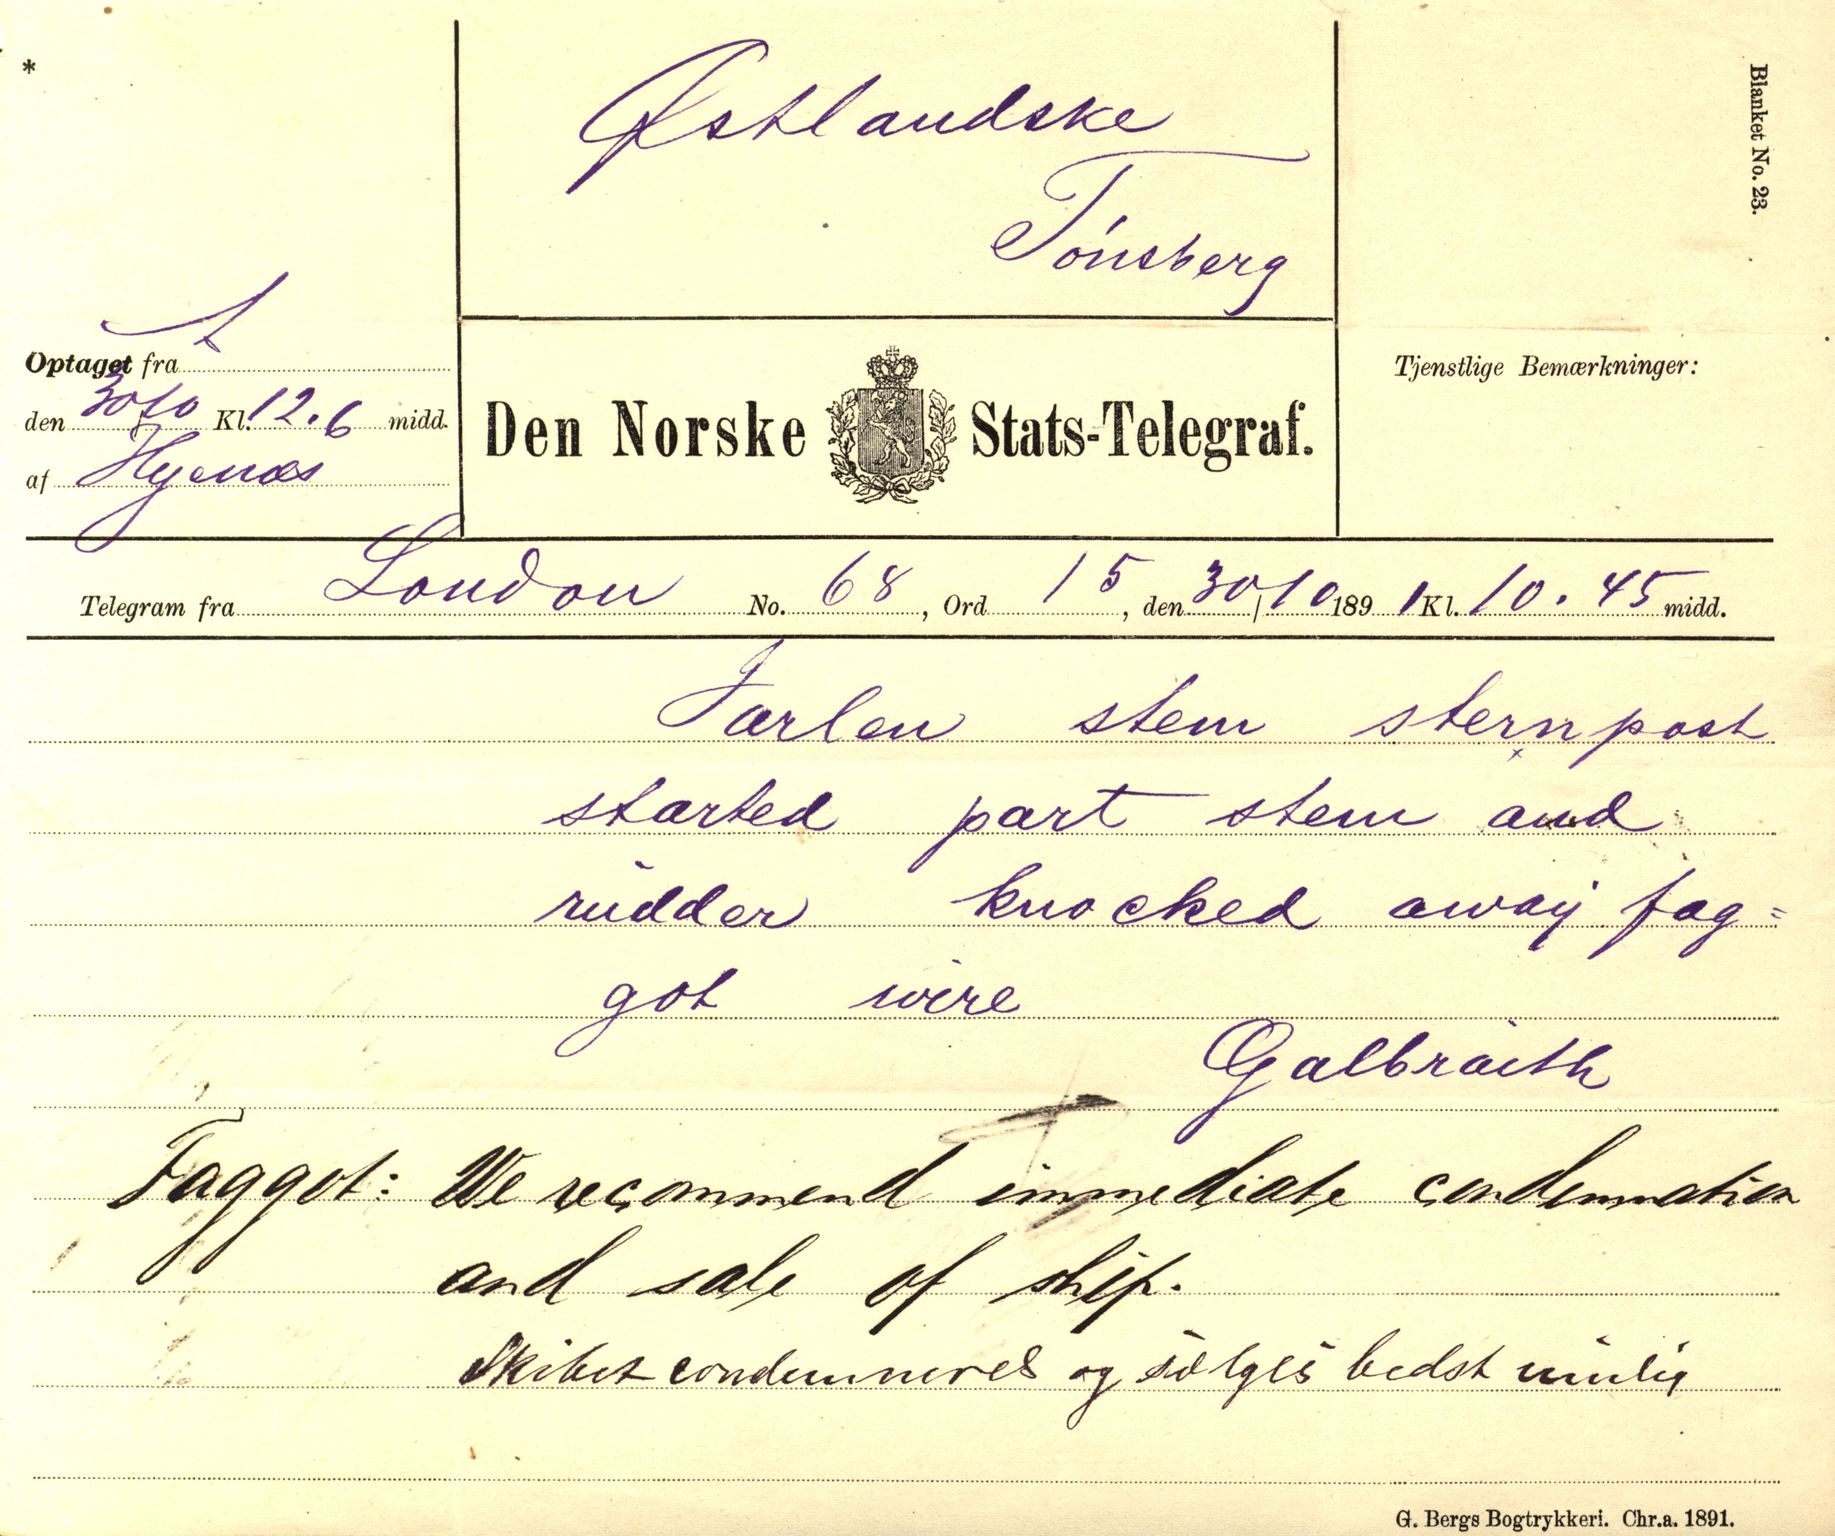 *
Østlandske
Tönsberg
Blanket No. 23.
A
Optaget fra
den 30/10 Kl. 12.6 midd.
af Hyenæs
Den Norske Stats-Telegraf.
Tjenstlige Bemærkninger:
Telegram fra London No. 68, Ord 15, den 30/10 1891 Kl. 10.45 midd.
Jarlen stem sternpost
started part stem and
rudder knocked away fag=
got wire
Galbraith
Faggot: We recommend immediate condemnation
and sale of ship.
Skibet condemneres og sælges bedst mulig
G. Bergs Bogtrykkeri. Chr.a. 1891.